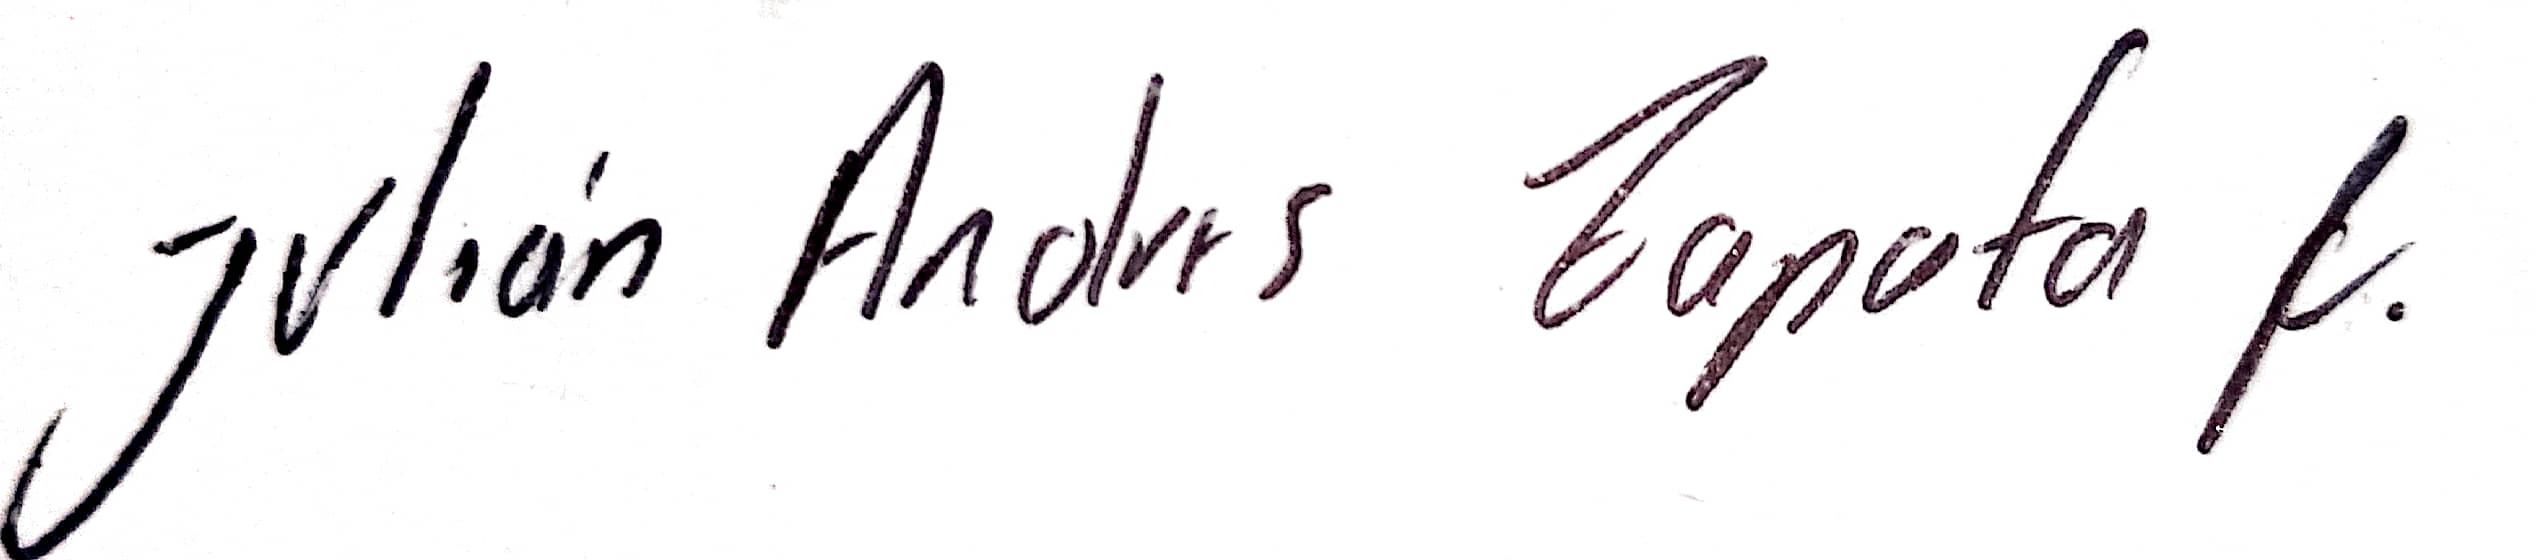 Julián Andres Zapata